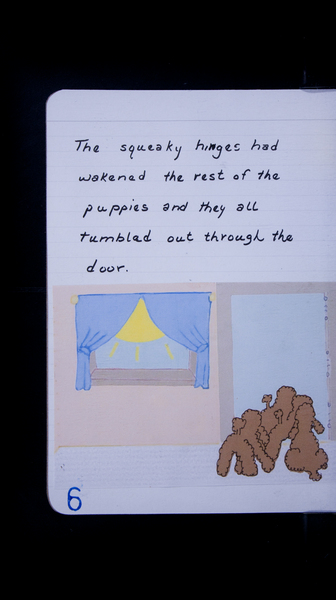 The squeaky hinges had
wakened the rest of the
puppies and they all
tumbled out through the
door.
6